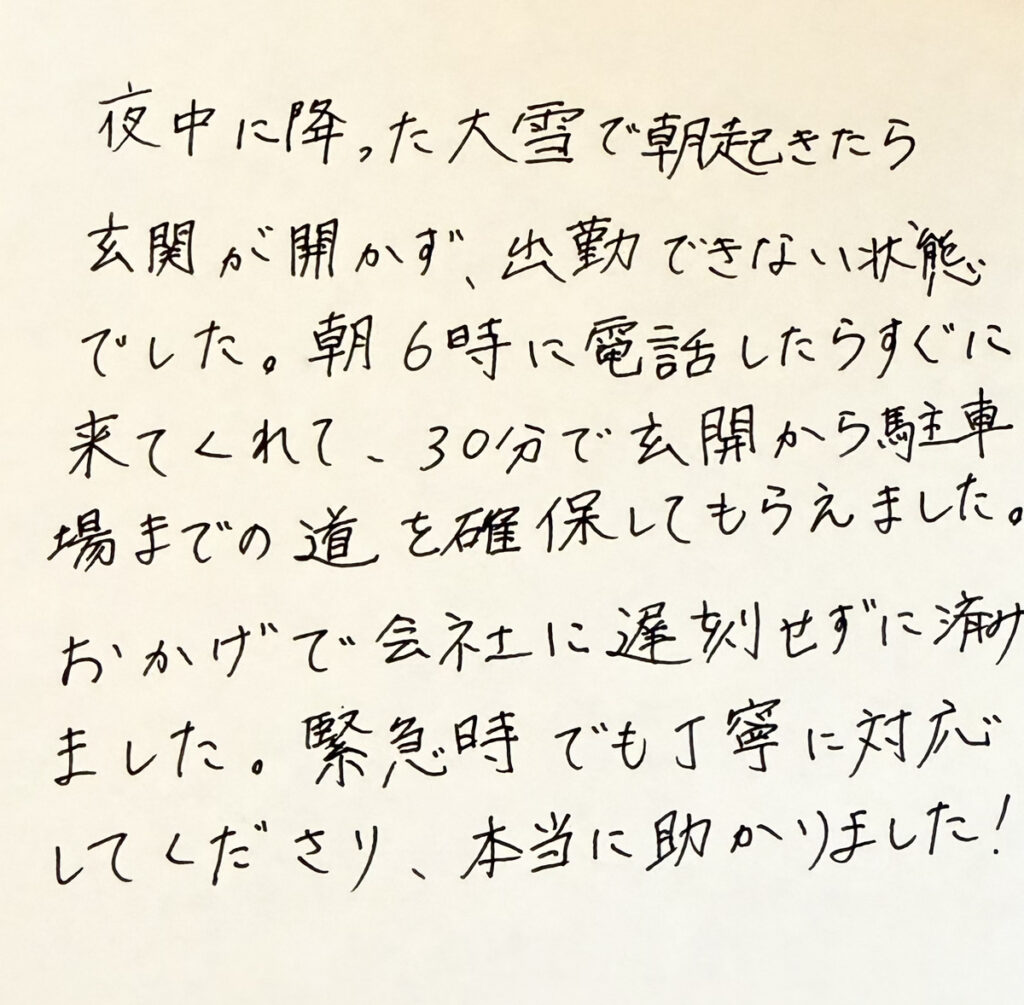 夜中に降った大雪で朝起きたら
玄関が開かず、出勤できない状態
でした。朝6時に電話したらすぐに
来てくれて、30分で玄開から駐車
場までの道を確保してもらえました。
おかげで会社に遅刻せずに済み
ました。緊急時でも丁寧に対応
してくださり、本当に助かりました！